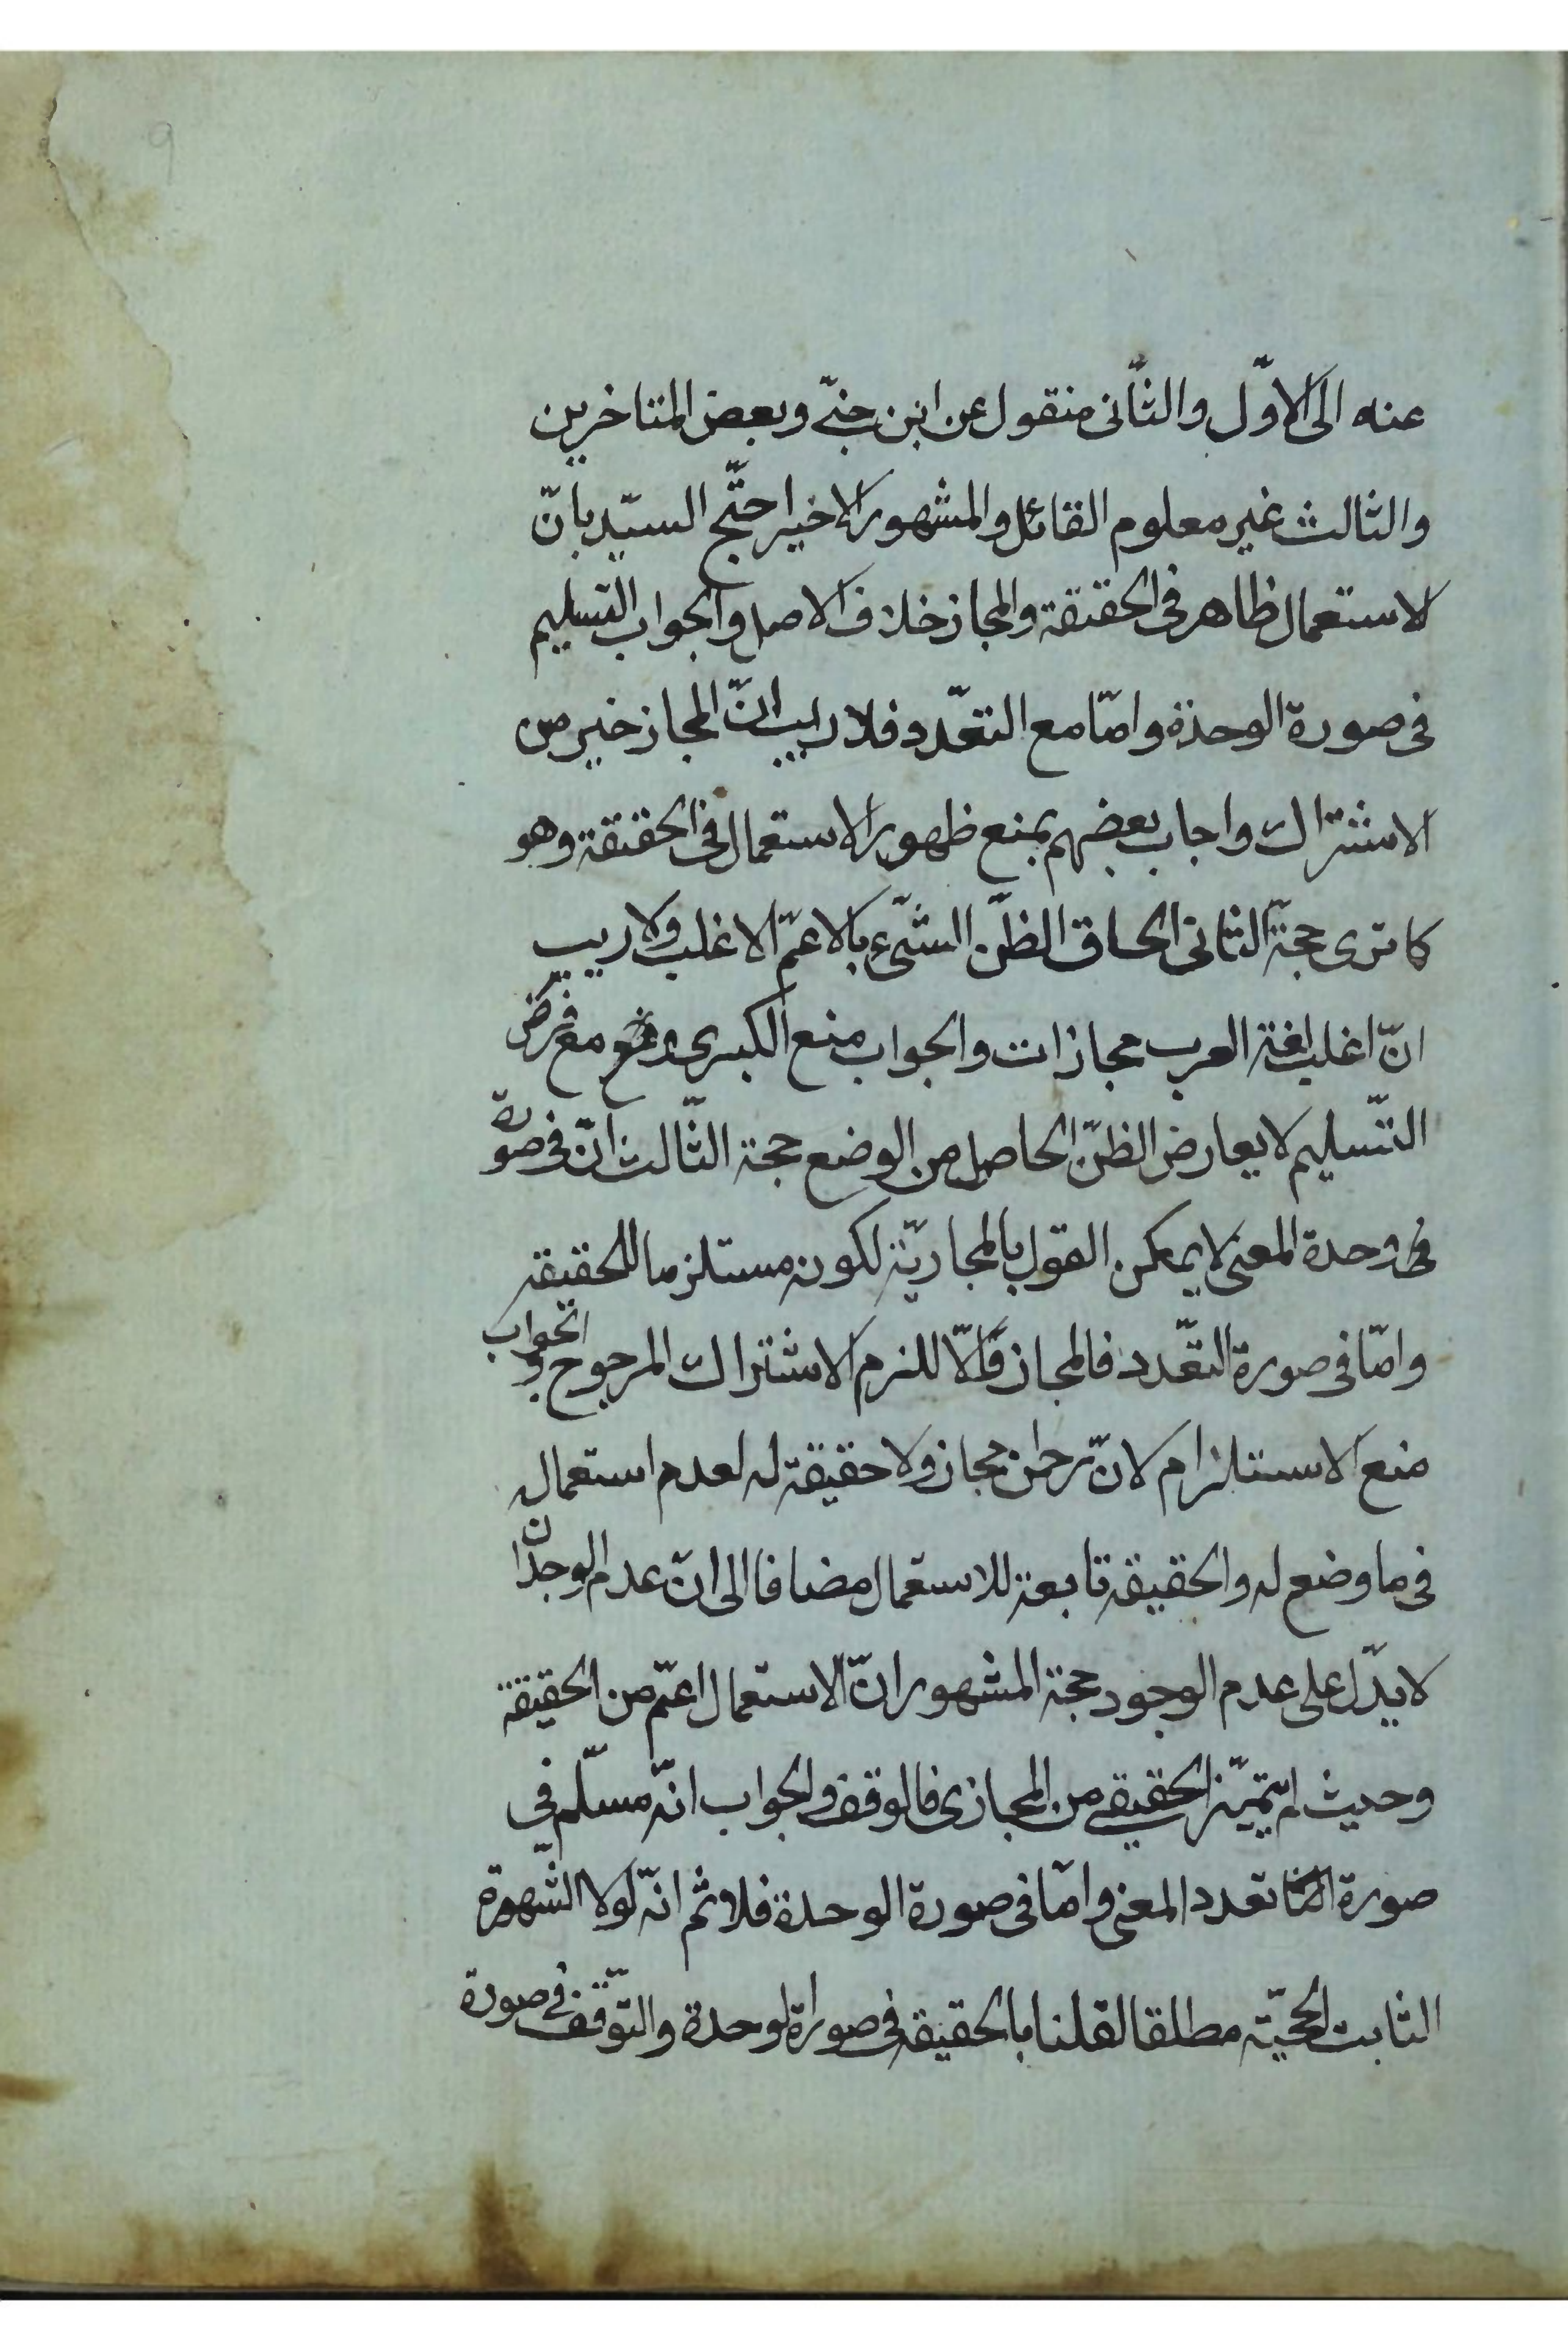 عنه الى الاوّل والثّانى منقول عن ابن جنّى وبعض المتاخرين
والثالث غير معلوم القائل والمشهور الاخير احتّج السيّد بانّ
الاستعمال ظاهر فى الحقيقة والمجاز خلاف الاصل والجواب التسليم
فى صورة الوحدة وامّا مع التعّدد فلا ريب انّ المجاز خير من
الاشتراك واجاب بعضهم بمنع ظهور الاستعمال فى الحقيقة وهو
كما ترى حجّة الثانى الحاق الظنّ الشّىء بالاعمّ الاغلب ولا ريب
انّ اغلب لغة العرب مجازات والجواب منع الكبرى مع فرض
التّسليم لا يعارض الظنّ الحاصل من الوضع حجة الثّالث انّ فى صورة
فى وحدة المعنى لا يمكن القول بالمجازيّة لكونه مستلزما للحقيقة
وامّا فى صورة التعّدد فالمجاز والّا للزم الاشتراك المرجوح والجواب
منع الاستلزام لانّ رحمن مجاز ولا حقيقة له لعدم استعماله
فى ما وضع له والحقيقة تابعة للاستعمال مضافا الى انّ عدم الوجدان
لا يدّل على عدم الوجود حجة المشهور انّ الاستعمال اعمّ من الحقيقة
وحيث لم يتميّز الحقيقى من المجازى فالوقف والجواب انّه مسلّم فى
صورة تعدد المعنى وامّا فى صورة الوحدة فلا ثم انّه لولا الشّهرة
الثابت الحجيّة مطلقا لقلنا بالحقيقة فى صورة الوحدة والتوّقف فى صورة